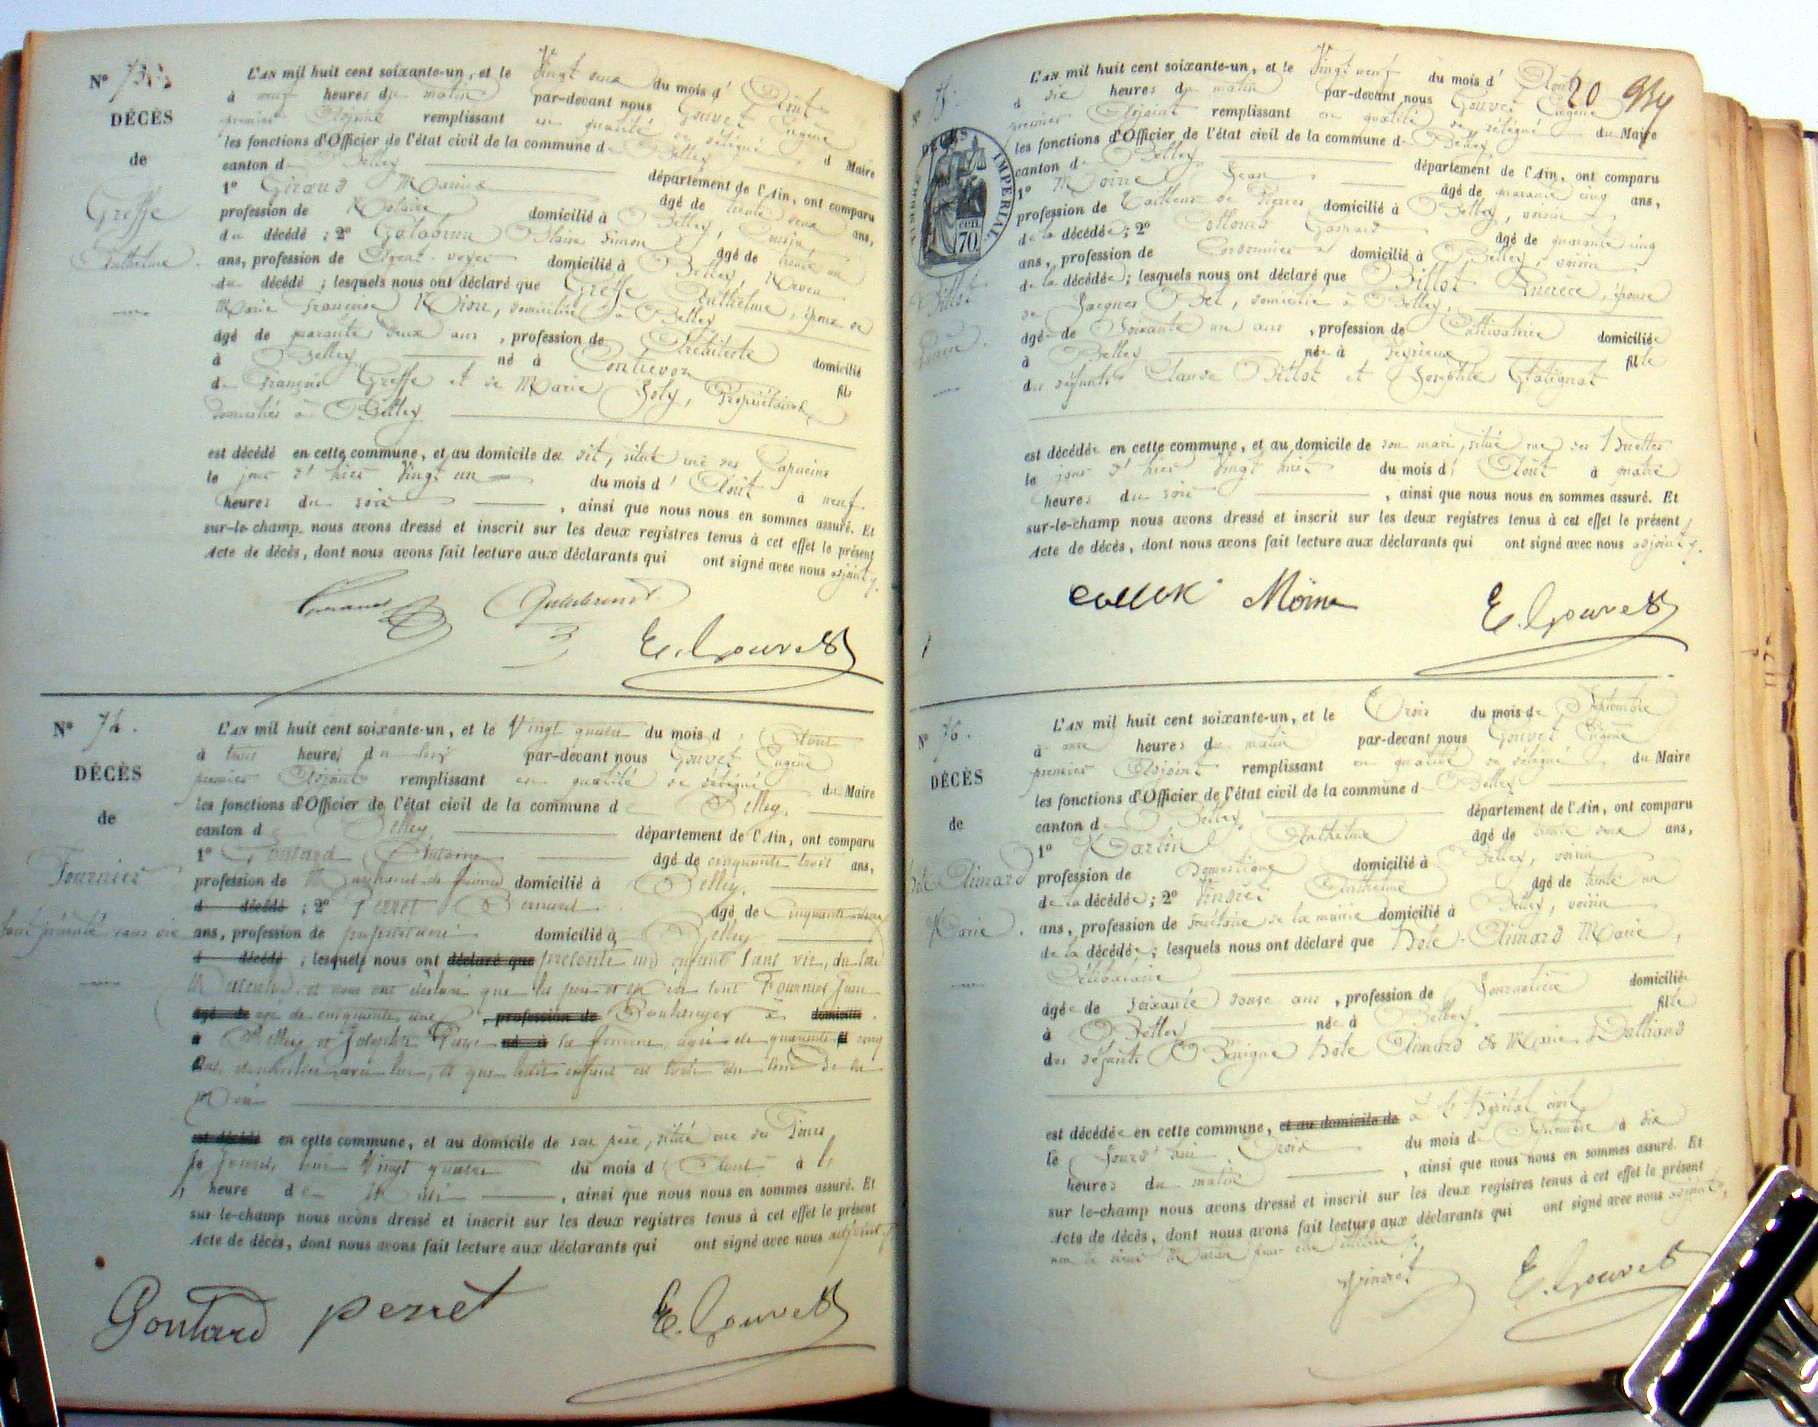 N° 73
DÉCÈS
de
Greffe
Anthelme.
L'AN mil huit cent soixante-un, et le Vingt deux du mois d'Août
à neuf heures du matin par-devant nous Gouvet Eugène
premier Adjoint remplissant en qualité de délégué
les fonctions d'Officier de l'état civil de la commune de Belley d Maire
canton de Belley département de l'Ain, ont comparu
1° Giraud Marius âgé de trente deux ans,
profession de Notaire domicilié à Belley, voisin
du décédé ; 2° Simon âgé de trente un
ans, profession de Agent-voyer domicilié à Belley, Neveu
du décédé ; lesquels nous ont déclaré que Greffe Anthelme, époux de
Marie Françoise domicilié à Belley
âgé de quarante deux ans, profession de Architecte domicilié
à Belley né à Contrevoz fils
de François Greffe et de Marie Joly, Propriétaires
domiciliés à Belley
est décédé en cette commune, et au domicile de dit, situé rue des Capucins
le jour d'hier Vingt un du mois d'Août à neuf
heures du soir, ainsi que nous nous en sommes assuré. Et
sur-le-champ nous avons dressé et inscrit sur les deux registres tenus à cet effet le présent
Acte de décès, dont nous avons fait lecture aux déclarants qui ont signé avec nous adjoint.
E. Gouvet
N° 74.
DÉCÈS
de
Fournier
enfant présenté sans vie
L'AN mil huit cent soixante-un, et le Vingt quatre du mois d Août
à trois heures du soir par-devant nous Gouvet Eugène
premier Adjoint remplissant en qualité de délégué du Maire
les fonctions d'Officier de l'état civil de la commune de Belley.
canton de Belley, département de l'Ain, ont comparu
1° Goutard Antoine âgé de cinquante trois ans,
profession de Marchand de domicilié à Belley.
d décédé ; 2° Perret Bernard âgé de Cinquante
ans, profession de propriétaire domicilié à Belley
d décédé ; lesquels nous ont déclaré que présenté un enfant sans vie, du sexe
Masculin, et nous ont déclaré que les père et mère sont Fournier Jean
âgé de âge de cinquante une profession de Boulanger à domicilié
à Belley et Josephte né à sa femme, âgée de quarante cinq
ans, domiciliée avec lui, et que ledit enfant est sorti du sein de sa
Mère
est décédé en cette commune, et au domicile de son père, situé rue des
le jourd'hui Vingt quatre du mois d Août à
heure de, ainsi que nous nous en sommes assuré. Et
sur-le-champ nous avons dressé et inscrit sur les deux registres tenus à cet effet le présent
Acte de décès, dont nous avons fait lecture aux déclarants qui ont signé avec nous adjoint.
Goutard perret E. Gouvet
20
N° 75.
DÉCÈS
TIMBRE IMPÉRIAL
70 CEN.
Billot
L'AN mil huit cent soixante-un, et le Vingt neuf du mois d'Août
à dix heures du matin par-devant nous Gouvet Eugène
premier Adjoint remplissant en qualité de délégué du Maire
les fonctions d'Officier de l'état civil de la commune de Belley
canton de Belley département de l'Ain, ont comparu
1° Moine Jean âgé de quarante cinq ans,
profession de Tailleur de Pierres domicilié à Belley, voisin
de la décédée ; 2° Gaspard âgé de quarante cinq
ans, profession de Cordonnier domicilié à Belley, voisin
de la décédée ; lesquels nous ont déclaré que Billot Lucrèce, épouse
de Jacques domicilié à Belley,
âgée de Soixante un ans, profession de Cultivatrice domiciliée
à Belley née à fille
des défunts Claude Billot et Josephte
est décédée en cette commune, et au domicile de son mari, situé rue des
le jour d'hier Vingt huit du mois d'Août à quatre
heures du soir, ainsi que nous nous en sommes assuré. Et
sur-le-champ nous avons dressé et inscrit sur les deux registres tenus à cet effet le présent
Acte de décès, dont nous avons fait lecture aux déclarants qui ont signé avec nous adjoint.
Moine E. Gouvet
N° 76.
DÉCÈS
de
Aimard
Marie.
L'AN mil huit cent soixante-un, et le Trois du mois de Septembre
à onze heures du matin par-devant nous Gouvet Eugène
premier Adjoint remplissant en qualité de délégué du Maire
les fonctions d'Officier de l'état civil de la commune de Belley
canton de Belley département de l'Ain, ont comparu
1° Martin Anthelme âgé de trente deux ans,
profession de Domestique domicilié à Belley, voisin
de la décédée ; 2° Anthelme âgé de trente un
ans, profession de Secrétaire de la mairie domicilié à Belley, voisin
de la décédée ; lesquels nous ont déclaré que Aimard Marie,
Célibataire
âgée de soixante douze ans, profession de Journalière domiciliée
à Belley née à Belley fille
des défunts Bénigne Aimard & Marie
est décédée en cette commune, et au domicile de à l'hôpital civil
le jourd'hui Trois du mois de Septembre à dix
heures du matin, ainsi que nous nous en sommes assuré. Et
sur le-champ nous avons dressé et inscrit sur les deux registres tenus à cet effet le présent
Acte de décès, dont nous avons fait lecture aux déclarants qui ont signé avec nous adjoint,
non le sieur Martin pour
E. Gouvet